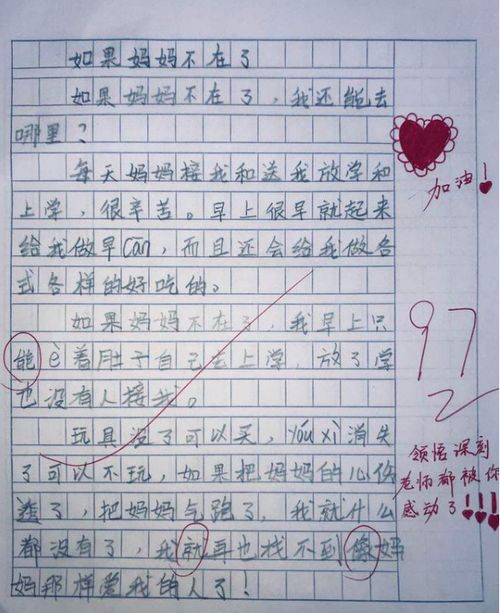 如果妈妈不在了
如果妈妈不在了，我还能去
哪里？
每天妈妈接我和送我放学和
上学，很辛苦。早上很早就起来
给我做早cān，而且还会给我做各
式各样的好吃的。
如果妈妈不在了，我早上只
能è着肚子自己去上学，放了学
也没有人接我。
玩具没了可以买，yóu xì消失
了可以不玩，如果把妈妈的心伤
透了，把妈妈气跑了，我就什么
都没有了，我就再也找不到像妈
妈那样爱我的人了！
加油！
97
领悟深刻
老师都被你
感动了！！！